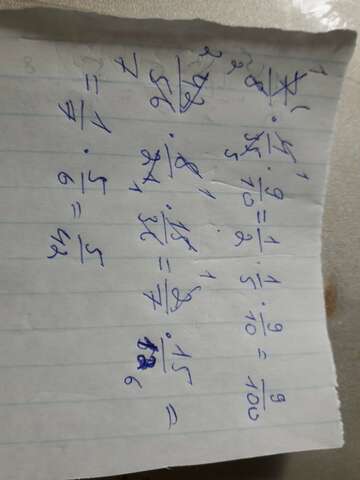 7/8 · 4/35 · 9/10 = 1/2 · 1/5 · 9/10 = 9/100
42/56 · 8/21 · 15/36 = 2/7 · 15/ =
= 1/7 · 5/6 = 5/42